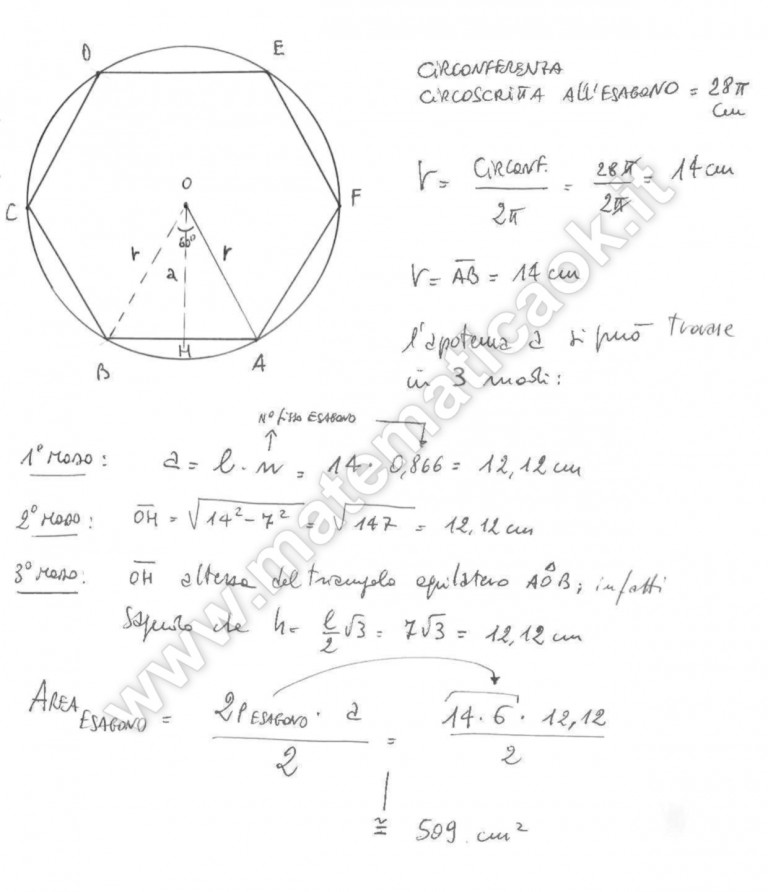 D E
O
C F
60°
r a r
B H A
CIRCONFERENZA
CIRCOSCRITTA ALL'ESAGONO = 28π cm
r = CIRCONF. / 2π = 28π / 2π = 14 cm
r = AB = 14 cm
l'apotema a si può trovare
in 3 modi:
N° fisso ESAGONO
1° MODO: a = l · n = 14 · 0,866 = 12,12 cm
2° MODO: OH = √14² - 7² = √147 = 12,12 cm
3° MODO: OH altezza del triangolo equilatero AÔB; infatti
Sapendo che h = l/2 √3 = 7√3 = 12,12 cm
AREA ESAGONO = 2P ESAGONO · a / 2 = 14 · 6 · 12,12 / 2
≅ 509 cm²
www.matematicaok.it